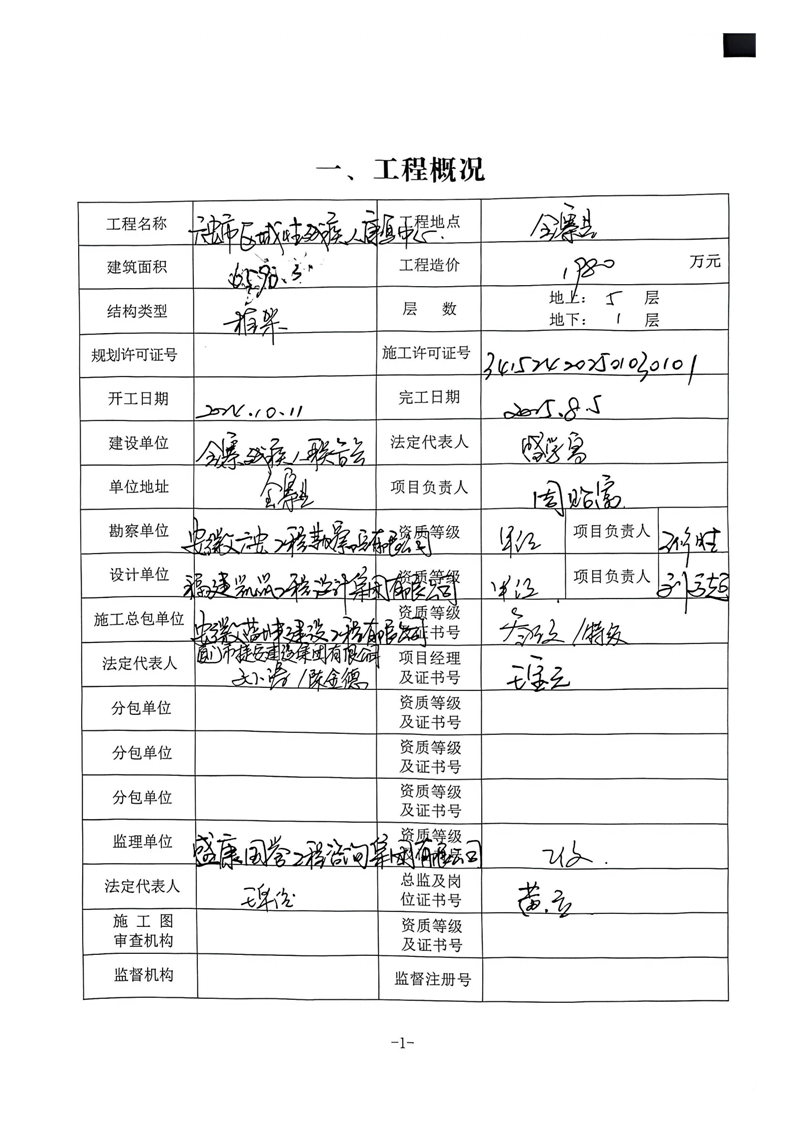 一、工程概况
工程名称 六安市区域性残疾人康复中心 工程地点 金寨县
建筑面积 工程造价 1980 万元
结构类型 框架 层数 地上：5层
地下：1层
规划许可证号 施工许可证号 341524202501030101
开工日期 2024.10.11 完工日期 2025.8.5
建设单位 金寨残疾人联合会 法定代表人
单位地址 金寨县 项目负责人
勘察单位 安徽六安工程勘察院有限公司 资质等级 甲级 项目负责人
设计单位 福建 工程设计集团有限公司 资质等级 甲级 项目负责人
施工总包单位 安徽 建设工程有限公司 资质等级
及证书号 /特级
厦门市捷安建设集团有限公司
法定代表人 /陈金德 项目经理
及证书号
分包单位 资质等级
及证书号
分包单位 资质等级
及证书号
分包单位 资质等级
及证书号
监理单位 盛康国誉工程咨询集团有限公司 资质等级
法定代表人 总监及岗
位证书号
施工图
审查机构 资质等级
及证书号
监督机构 监督注册号
-1-